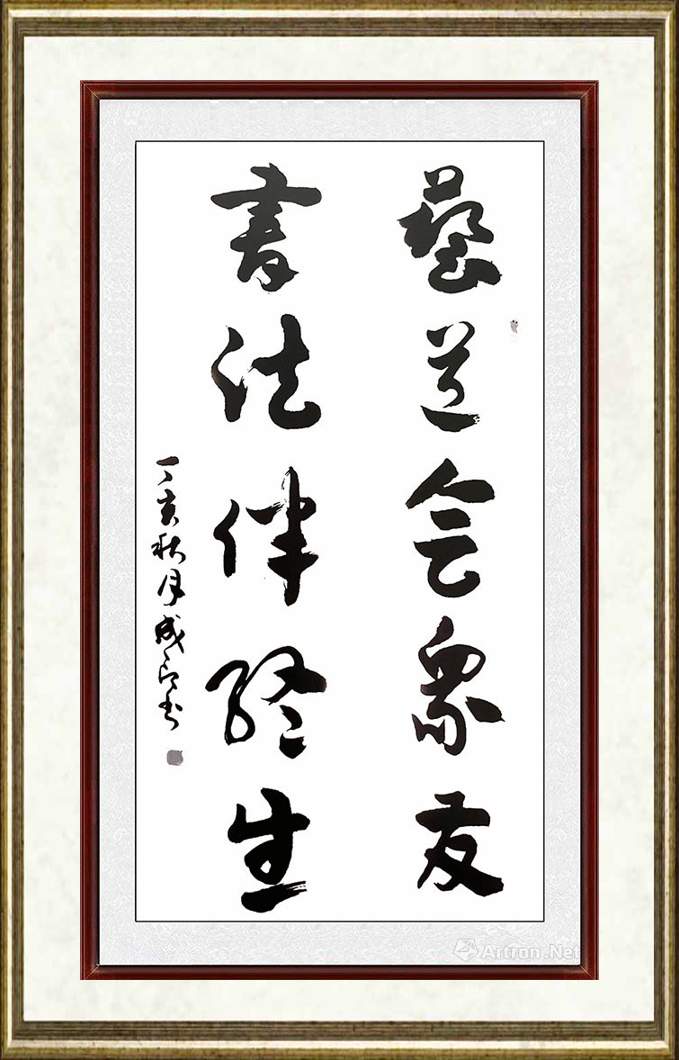 藝道会眾友
書法伴终生
丁亥秋月成
Artron.Net